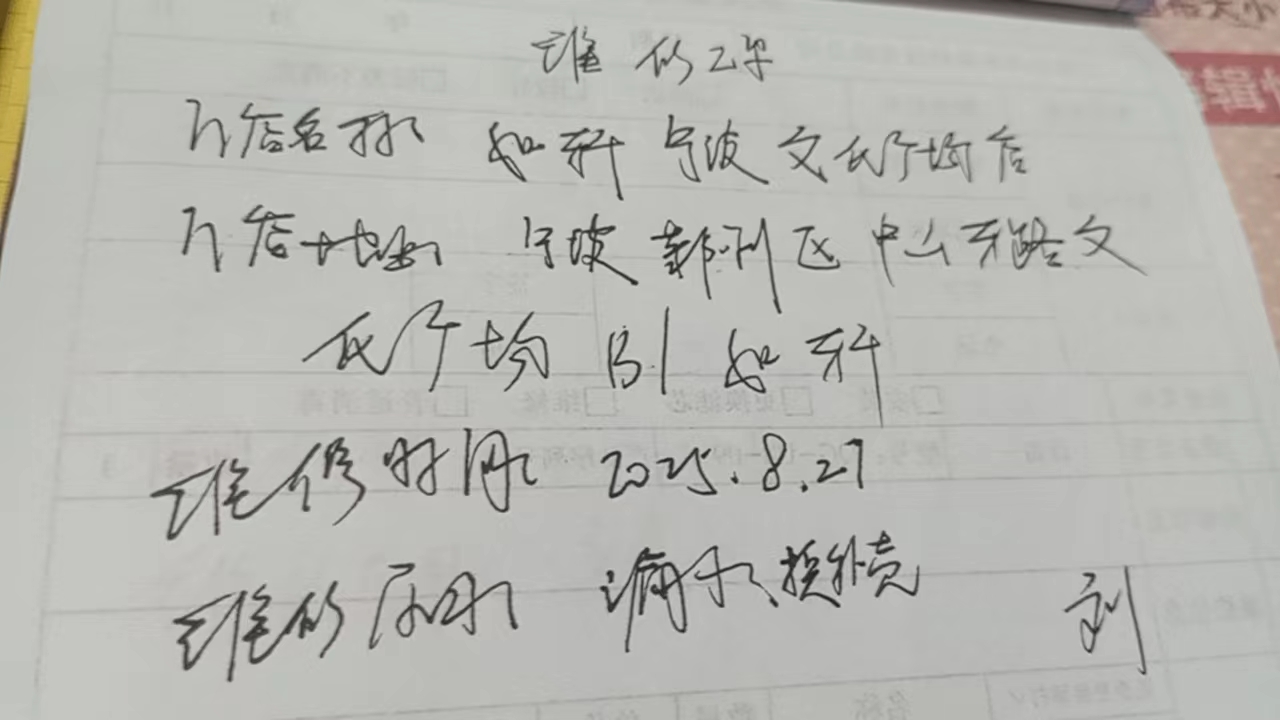 维修工单
门店名称 如轩 宁波文化广场店
门店地址 宁波鄞州区中山东路文
化广场 B1 如轩
维修时间 2025.8.27
维修原因 漏水、换外壳 刘